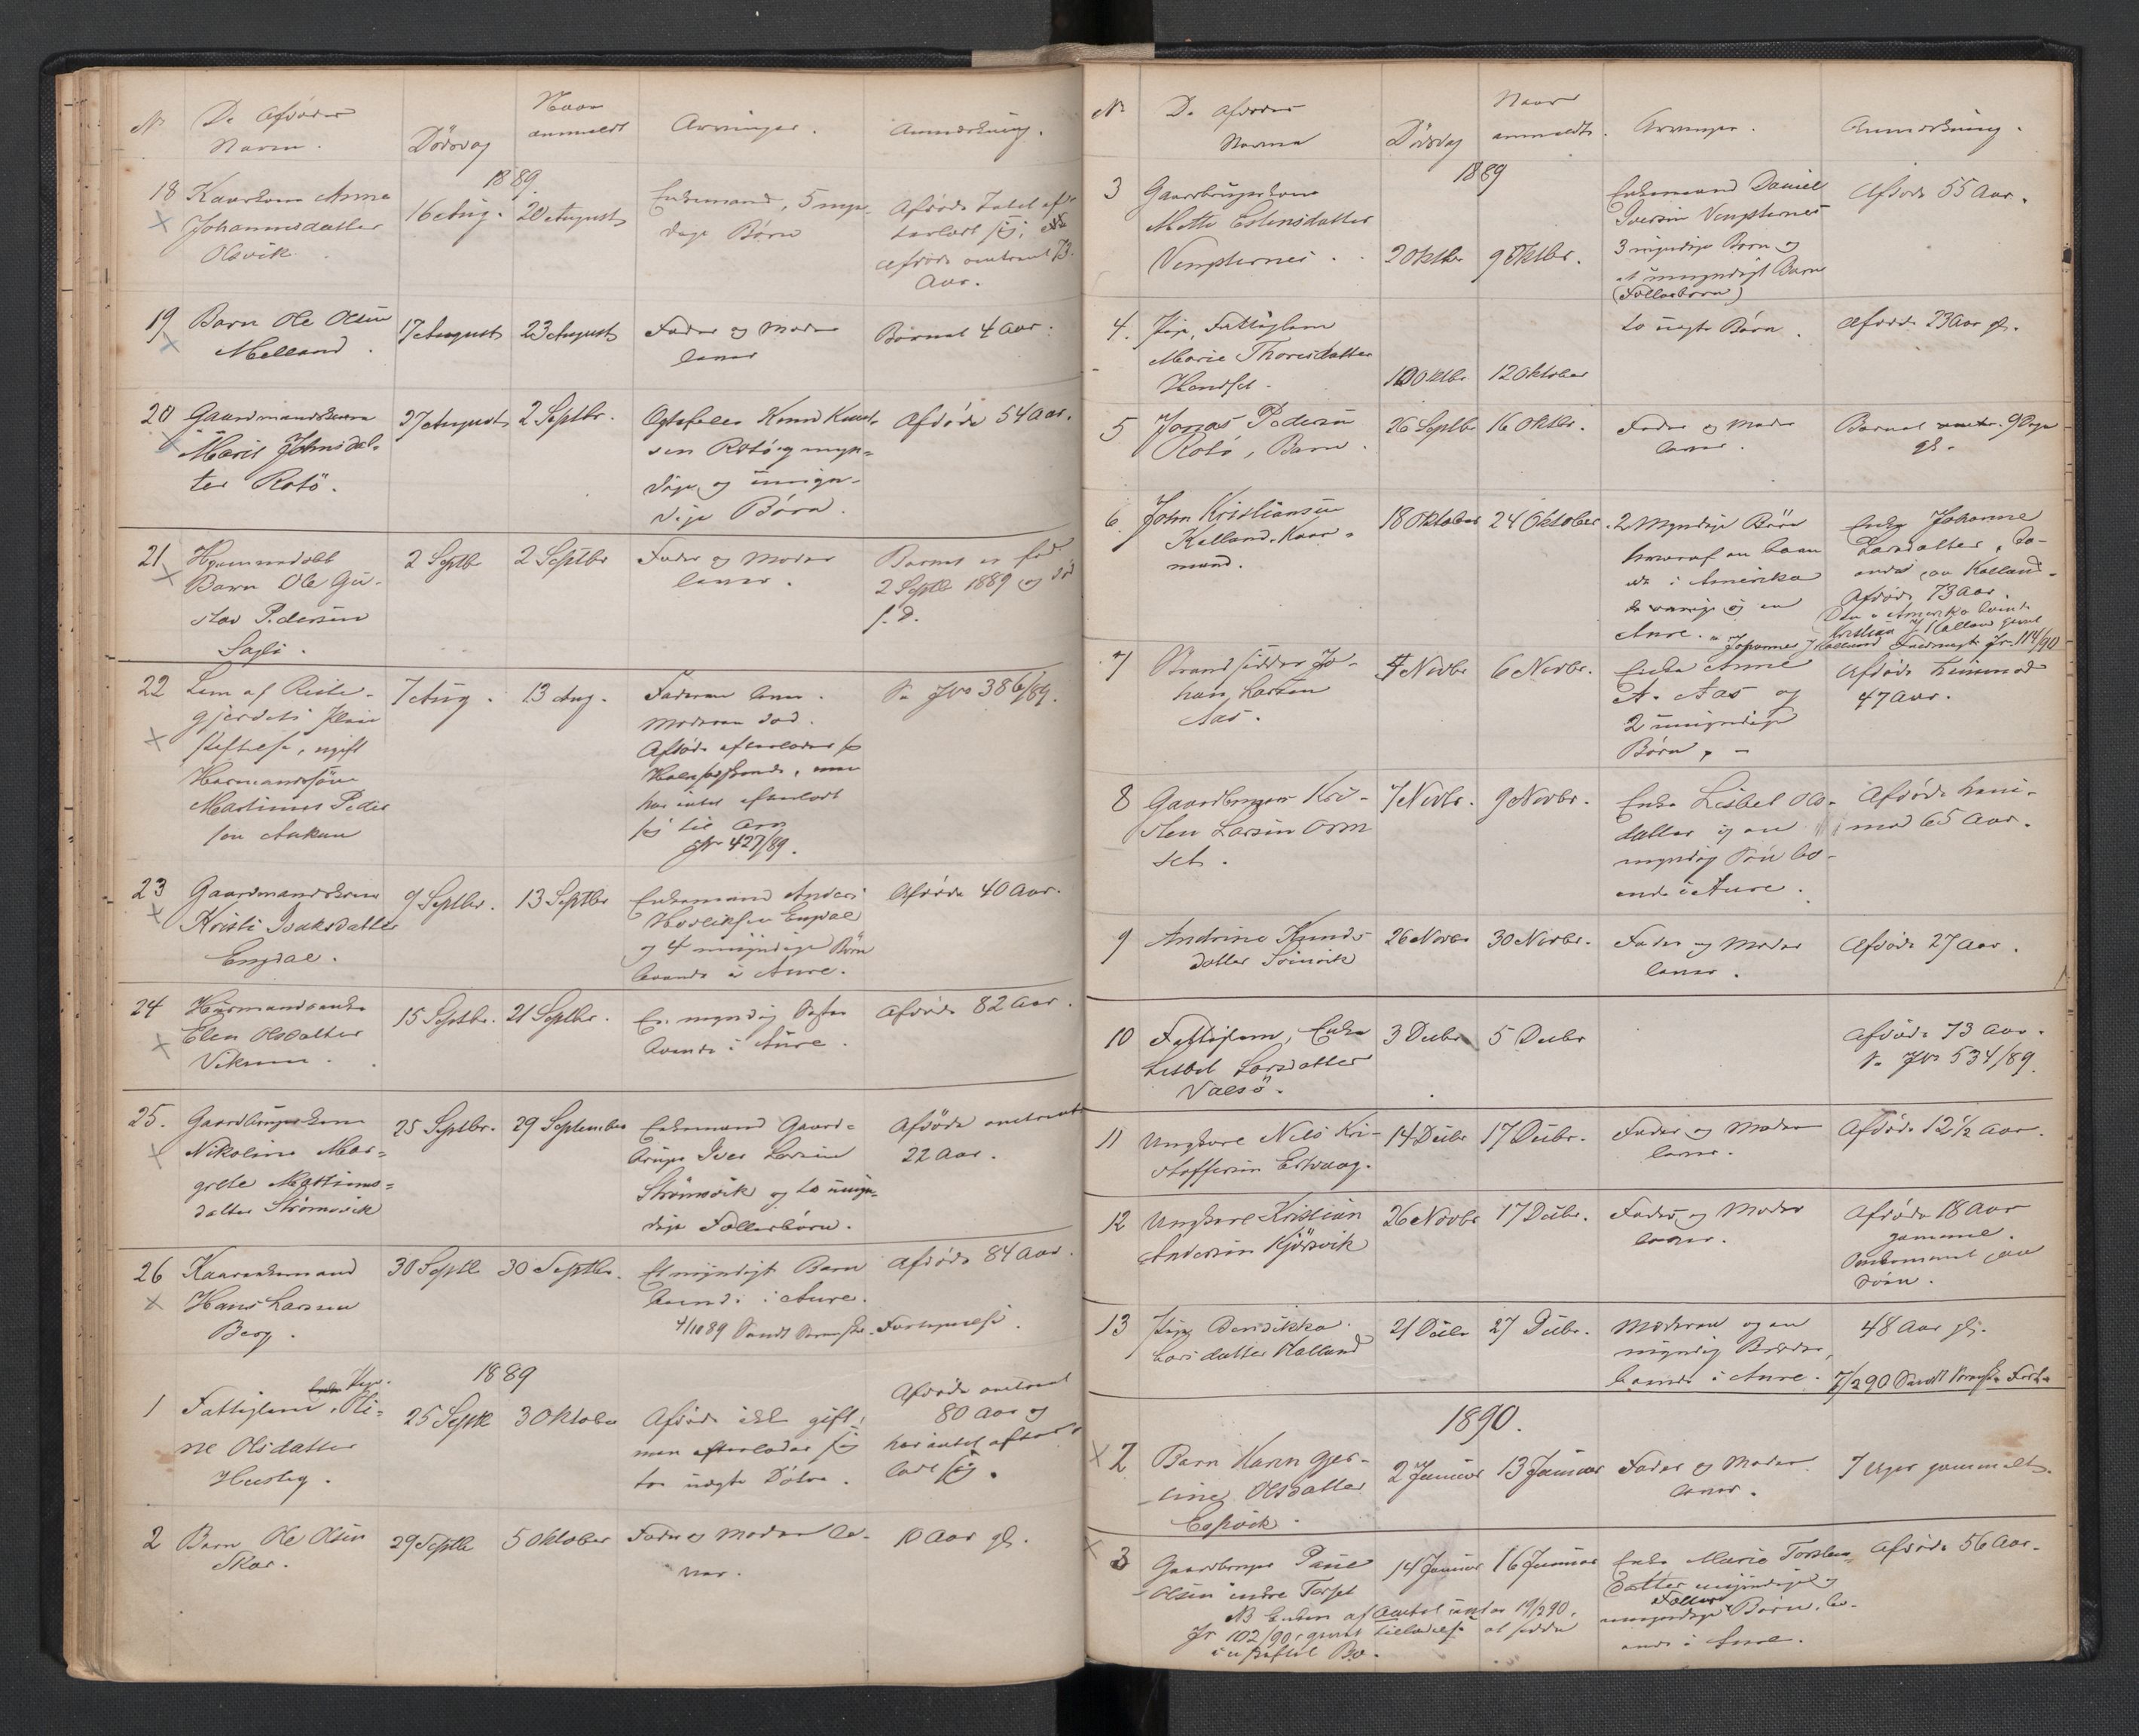 Nr De Afdødes Navn. Dødsdag Naar anmeldt Arvinger. Anmærkning.
1889.
18 Kaarkone Anna
Johannesdatter
Olsvik.
16 Aug. 20 August
Enkemand, 5 myn-
dige Børn
Afdøde Intet efter-
ladt sig;
Afdøde omtrent 73
Aar.
19 Barn Ole Olsen
Melland.
17 August 23 August
Fader og Moder
lever
Barnet 4 Aar.
20 Gaardmandskone
Marit Johnsdat-
ter Rotø.
27 August 2 Septbr.
Ægtefelle Knud Knud-
sen Rotø og myn-
dige og umyn-
dige Børn.
Afdøde 54 Aar.
21 Huusmandsbb
Barn Ole Gu-
stav Pedersen
Sagli.
2 Septb 2 Septbr
Fader og Moder
lever.
Barnet er født
2 Septb 1889 og død
s. D.
22 Lem af Reite-
gjerdets Pleie
stiftelse, ugift
Husmandssøn
Martinus Peder
sen Aukan
7 Aug. 13 Aug.
Faderen lever.
Moderen død.
Afdøde efterlader
har intet efterladt
sig til Arv
Jr 427/89.
Se Jr 386/89.
23 Gaardmandskone
Kristi Isaksdatter
Engdal.
9 Septbr. 13 Septbr
Enkemand Anders
Engdal
og 4 umyndige Børn
boende i Aure.
Afdøde 40 Aar.
24 Husmandsenke
Elen Olsdatter
Vikum.
15 Septbr. 21 Septbr.
En myndig Søster
boende i Aure.
Afdøde 82 Aar.
25. Gaardbrugerkone
Nikoline Mar-
grete Martinus-
datter Strømsvik
25 Septbr. 29 September
Enkemand Gaard-
bruger Iver Larsen
Strømsvik og to umyn-
dige Fællesbørn.
Afdøde omtrent
22 Aar.
26 Kaarenkemand
Hans Larsen
Berg.
30 Septb 30 Septbr.
Et myndigt Barn
boende i Aure.
4/10 89 Sendt Forespørgsel.
Afdøde 84 Aar.
1889
1 Fattiglem, Pige. Oli-
ne Olsdatter
Husby.
25 Septb 3 Oktober
Afdøde ikke gift,
men efterlader sig
to uægte Døtre.
Afdøde omtrent
80 Aar og
har intet efter-
ladt sig.
2 Barn Ole Olsen
Skar.
29 Septb 5 Oktober
Fader og Moder le-
ver.
10 Aar gl.
Nr De Afdødes Navne Dødsdag Naar anmeldt. Arvinger. Anmærkning.
1889
3 Gaardbrugerkone
Mette Estensdatter
Vengsternes.
2 Oktbr 9 Oktbr.
Enkemand Daniel
Iversen Vengsternes
3 myndige Børn og
et umyndigt Barn
(Fællesbørn)
Afdøde 55 Aar.
4. Pige, Fattiglem
Marie Thoresdatter
10 Oktbr 12 Oktober
to uægte Børn.
Afdøde 23 Aar gl.
5 Jonas Pedersen
Rotø, Barn.
26 Septbr 16 Oktbr.
Fader og Moder
lever.
Barnet omtr. 9 Dage
gl.
6 John Kristiansen
Kelland. Kaar-
mand.
18 Oktober 24 Oktober.
2 Myndige Børn
hvoraf en boen
de i Amerika
de øvrige og en
Aure.
Enke Johanne
Larsdatter, bo-
ende paa Kalland.
Afdøde 73 Aar.
Jr. 114/90
7 Strandsidder Jo-
han Larsen
Aas.
4 Novbr 6 Novbr.
Enke Anne
A. Aas og
2 umyndige
Børn.
Afdøde henimod
47 Aar.
8 Gaardbruger Kri-
sten Larsen Orm
set.
7 Novbr. 9 Novbr.
Enke Lisbet Ols-
datter og en
myndig Søn bo-
ende i Aure.
Afdøde heni-
mod 65 Aar.
9 Andrine Knuds-
datter Soinvik
26 Novbr 30 Novbr.
Fader og Moder
lever.
Afdøde 27 Aar.
10 Fattiglem, Enke
Lisbet Larsdatter
Valsø.
3 Decbr 5 Decbr
Afdøde 73 Aar.
Se Jr 534/89.
11 Ungkarl Nils Kri-
stoffersen Ertvaag.
14 Decbr 17 Decbr.
Fader og Moder
lever.
Afdøde 12½ Aar.
12 Ungkarl Kristian
Andersen Kjørsvik
26 Novbr 17 Decbr.
Fader og Moder
lever.
Afdøde 18 Aar
gammel.
Omkommet paa
Søen.
13 Pige Benedikka
Larsdatter Kalland
21 Decbr 27 Decbr.
Moderen og en
myndig Broder,
boende i Aure.
48 Aar gl.
7/2 90 Sendt
1890.
2 Barn Karen Ger-
line Olsdatter
Espvik.
2 Januar 13 Januar
Fader og Moder
lever.
7 Uger gammelt.
3 Gaardbruger Paul
Olsen indre Torset
14 Januar 16 Januar
Enke Marie Torsten
datter myndige og
umyndige Fælles Børn, bo-
ende i Aure.
Afdøde 56 Aar.
NB Enken af Amtet under 19/2 90,
Jr 102/90, givet tilladelse at sidde
i uskiftet Bo.